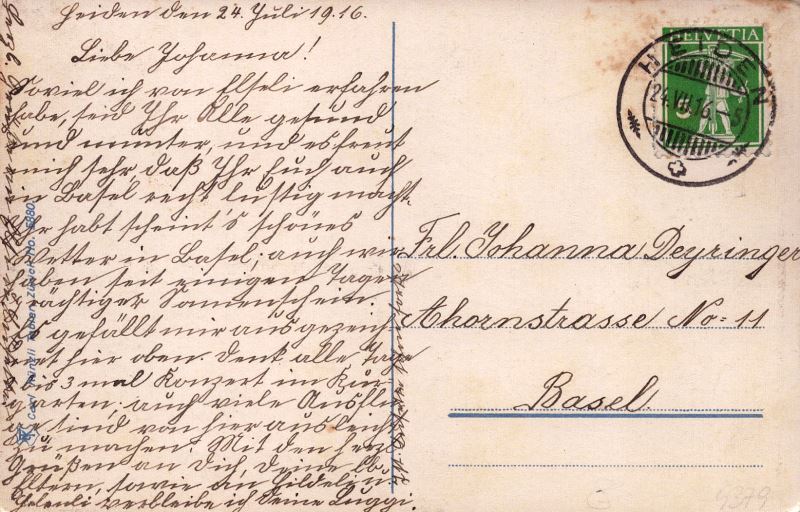 Heiden den 24. Juli 1916.
Liebe Johanna!
Soviel ich von Elseli erfahren
habe, seid Ihr Alle gesund
und munter, und es freut
mich sehr, daß Ihr Euch auch
in Basel recht lustig macht.
Ihr habt scheint's schönes
Wetter in Basel; auch wir
haben seit einigen Tagen
prächtiger Sonnenschein.
Es gefällt mir ausgezeich-
net hier oben. Denk alle Tage
bis 3 mal Konzert im Kur-
garten; auch viele Ausflü-
ge sind von hier aus leicht
zu machen. Mit den herzl.
Grüßen an Dich, Deine lb.
Eltern, sowie an Hildeli u.
Helenli verbleibe ich Deine Luggi.
Carl Künzli Tobler, Zürich No.
HELVETIA
5
HEIDEN
24.VII.16. -5
Frl. Johanna Deyringer
Ahornstrasse No= 11
Basel.